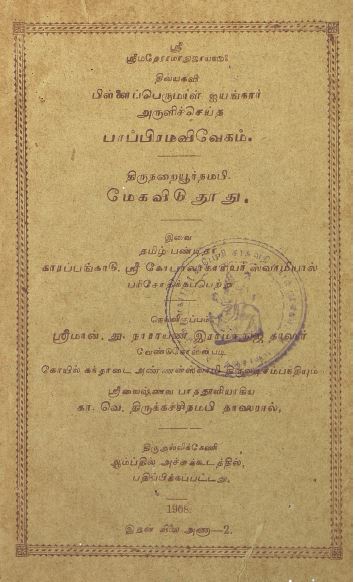 ஸ்ரீ
ஸ்ரீமதேராமாநுஜாயநம:
திவ்யகவி
பிள்ளைப்பெருமாள் ஐயங்கார்
அருளிச்செய்த
பரப்பிரமவிவேகம்.
திருநறையூர்நம்பி
மேகவிடுதூது.
இவை
தமிழ் பண்டிதர்
காரப்பங்காடு, ஸ்ரீ கோபாலாசாரியர் ஸ்வாமியால்
பரிசோதிக்கப்பெற்று
ஸ்ரீமான், இராமாநுஜ தாஸர்
வேண்டுகோளின்படி
கோயில் கந்தாடை அண்ணன்ஸ்வாமி
ஸ்ரீவைஷ்ணவ
கா. வெ. திருக்கச்சிநம்பி தாஸரால்,
திருவல்லிக்கேணி
அச்சுக்கூடத்தில்,
பதிப்பிக்கப்பட்டது.
1908.
இதன் விலை அணா—2.